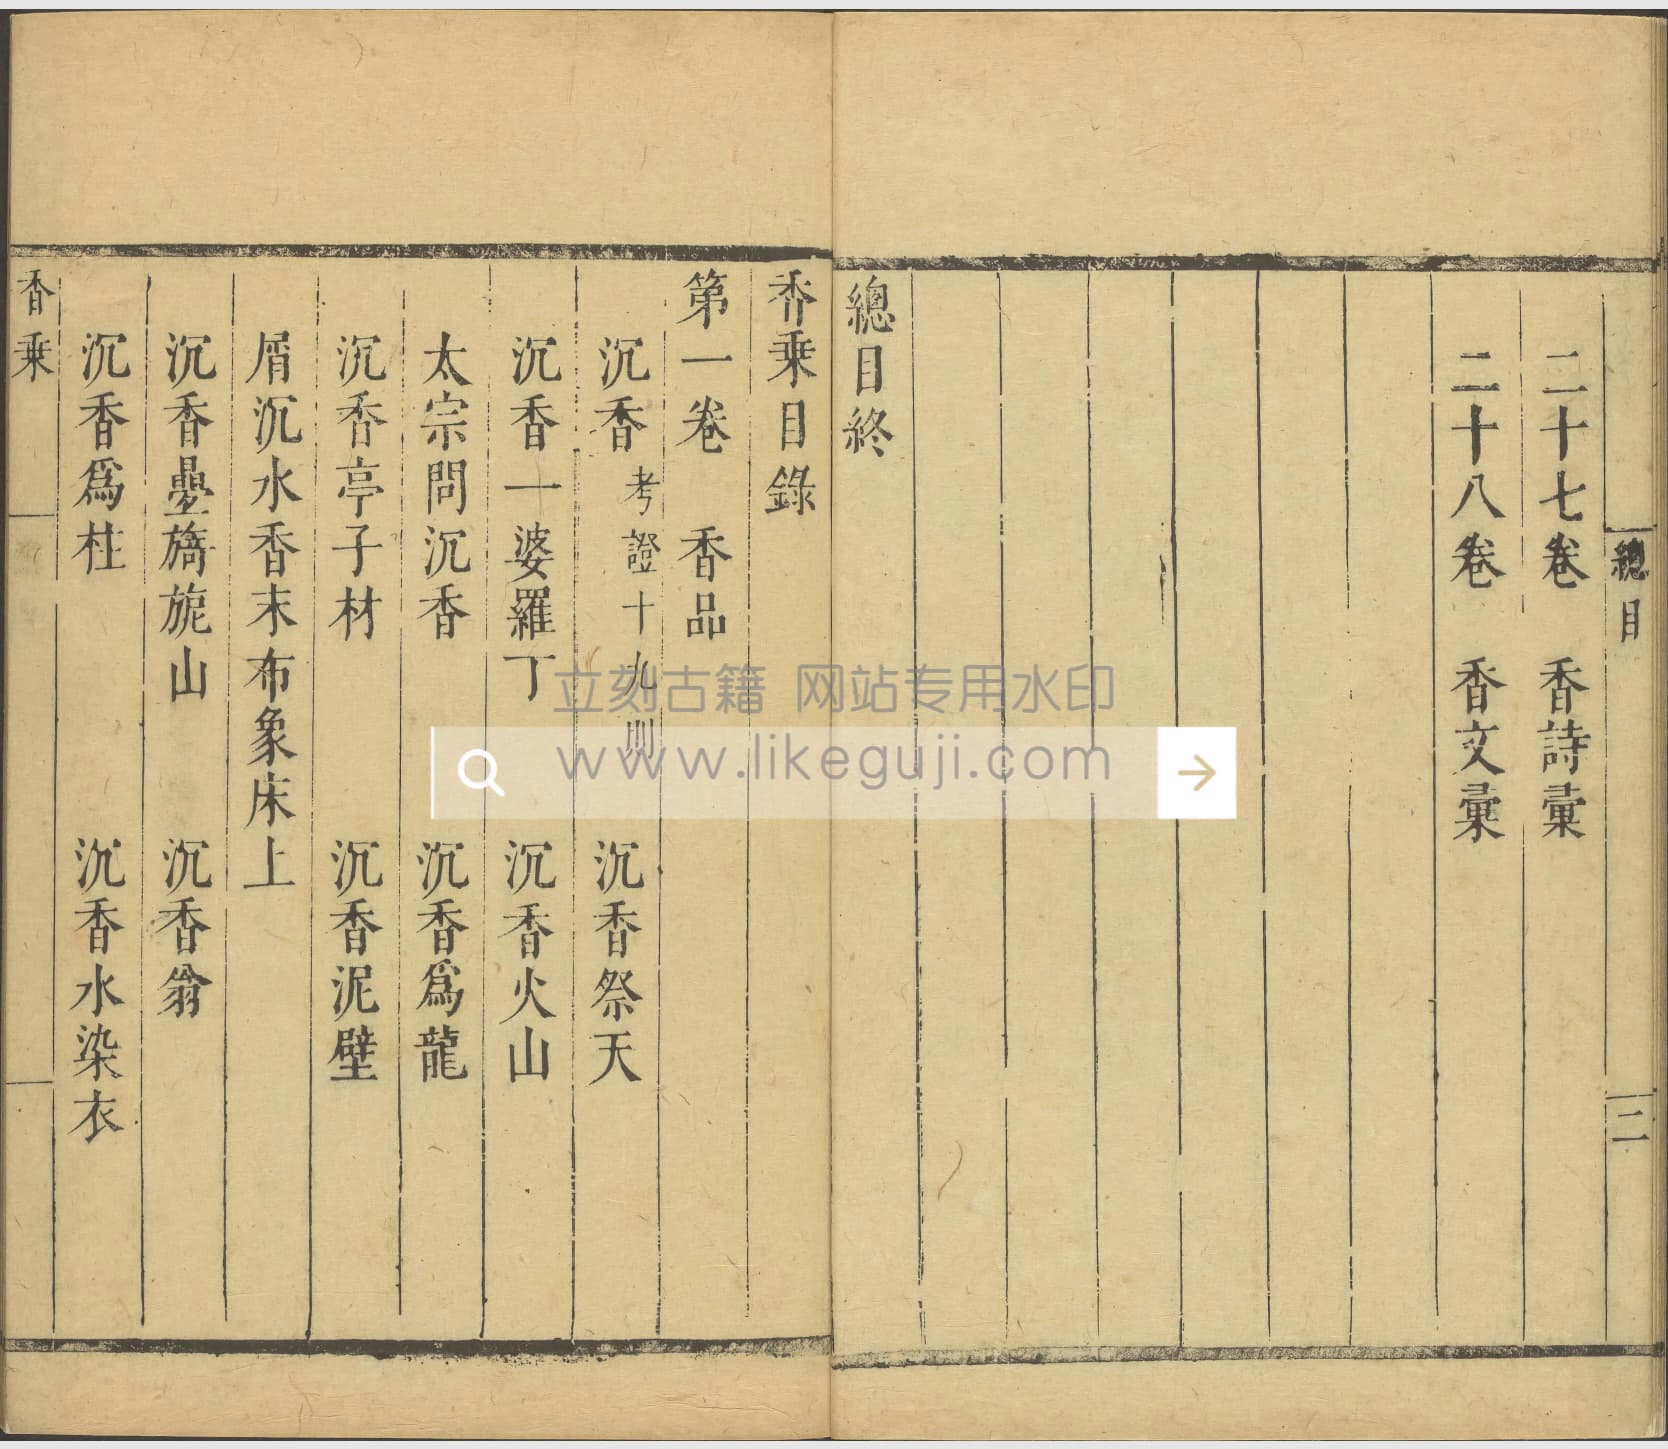 總目
二
二十七卷　香詩彙
二十八卷　香文彙
總目終
香乘目錄
第一卷　香品
沉香考證十九則　沉香祭天
沉香一婆羅丁　沉香火山
太宗問沉香　沉香爲龍
沉香亭子材　沉香泥壁
屑沉水香末布象床上
沉香疊旖旎山　沉香翁
沉香爲柱　沉香水染衣
香乘
立刻古籍 网站专用水印
www.likeguji.com